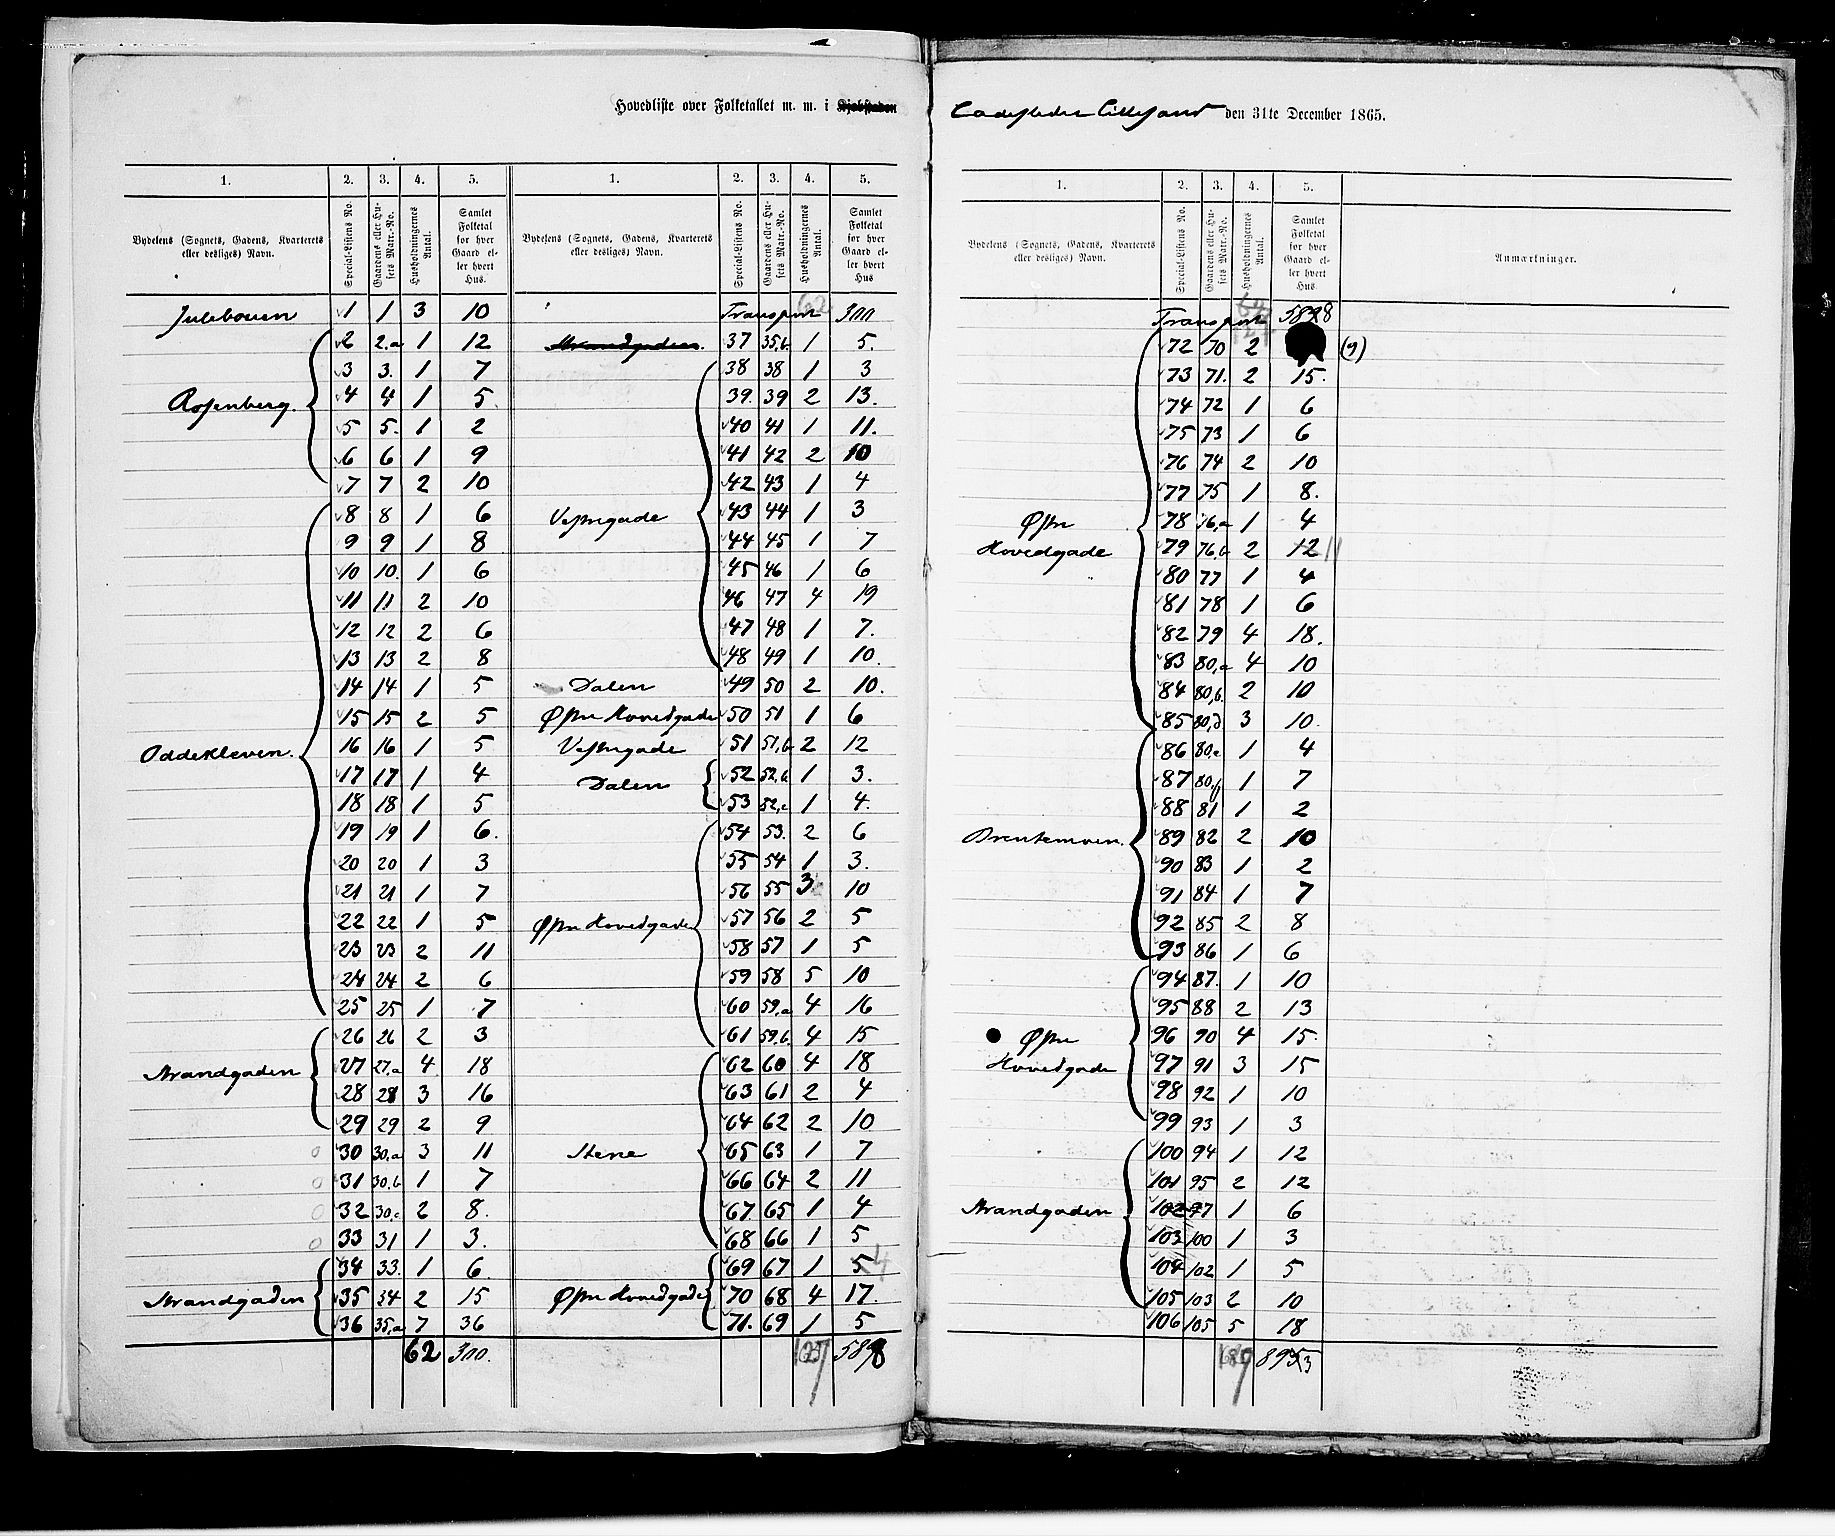 Hovedliste over Folketallet m. m. i Kjøbstaden Ladestedet Lillesand den 31te December 1865.
1. 2. 3. 4. 5.
Bydelens (Sognets, Gadens, Kvarterets eller desliges) Navn. Special-Listens No. Gaardens eller Husets Matr.-No. Husholdningernes Antal. Samlet Folketal for hver Gaard eller hvert Hus.
Julebouen 1 1 3 10
2 2.a 1 12
3 3. 1 7
Rosenberg. 4 4 1 5
5 5. 1 2
6 6 1 9
7 7 2 10
8 8 1 6
9 9 1 8
10 10. 1 6
11 11 2 10
12 12 2 6
13 13 2 8
14 14 1 5
15 15 2 5
Oddekleven. 16 16 1 5
17 17 1 4
18 18 1 5
19 19 1 6.
20 20 1 3
21 21 1 7
22 22 1 5
23 23 2 11
24 24 2 6
25 25 1 7
26 26 2 3
Strandgaden 27 27.a 4 18
28 28 3 16
29 29 2 9
30 30.a 3 11
31 30.b 1 7
32 30.c 2 8.
33 31 1 3.
34 33. 1 6.
Strandgaden 35 34 2 15
36 35.a 7 36
62 300.
1. 2. 3. 4. 5.
Bydelens (Sognets, Gadens, Kvarterets eller desliges) Navn. Special-Listens No. Gaardens eller Husets Matr.-No. Husholdningernes Antal. Samlet Folketal for hver Gaard eller hvert Hus
Transport 62 300
Strandgaden. 37 35.b. 1 5.
38 38 1 3
39. 39 2 13.
40 41 1 11.
41 42 2 10
42 43 1 4
Vestregade 43 44 1 3
44 45 1 7
45 46 1 6
46 47 4 19
47 48 1 7.
48 49 1 10.
Dalen 49 50 2 10.
Østre Hovedgade 50 51 1 6
Vestregade 51 51.b 2 12
Dalen 52 52.b. 1 3.
53 52.c 1 4.
54 53. 2 6
55 54 1 3.
56 55 3 10
Østre Hovedgade 57 56 2 5
58 57 1 5
59 58 5 10
60 59.a 4 16
61 59.b. 4 15
62 60 4 18
63 61 2 4
64 62 2 10
Stene 65 63 1 7
66 64 2 11
67. 65 1 4
68 66 1 5
69 67 1 5 4
Østre Hovedgade 70 68 4 17.
71. 69 1 5
127 5898
1. 2. 3. 4. 5.
Bydelens (Sognets, Gadens, Kvarterets eller desliges) Navn. Special-Listens No. Gaardens eller Husets Matr.-No. Husholdningernes Antal. Samlet Folketal for hver Gaard eller hvert Hus Anmærkninger.
Transport 5898
72 70 2 (9)
73 71. 2 15.
74 72 1 6
75 73 1 6
76 74 2 10
77 75 1 8.
Østre 78 76.a 1 4
Hovedgade 79 76.b 2 12 11
80 77 1 4
81 78 1 6
82 79 4 18.
83 80.a 4 10
84 80.b. 2 10
85 80.d 3 10.
86 80.e 1 4
87 80.f 1 7
88 81 1 2
Brentemoen. 89 82 2 10
90 83 1 2
91 84 1 7
92 85 2 8
93 86 1 6
94 87. 1 10
95 88 2 13
Østre 96 90 4 15.
Hovedgade 97 91 3 15
98 92 1 10
99 93 1 3
100 94 1 12
101 95 2 12
Strandgaden 102 97 1 6
103 100 1 3
104 102 1 5
105 103 2 10
106 105 5 18
8953